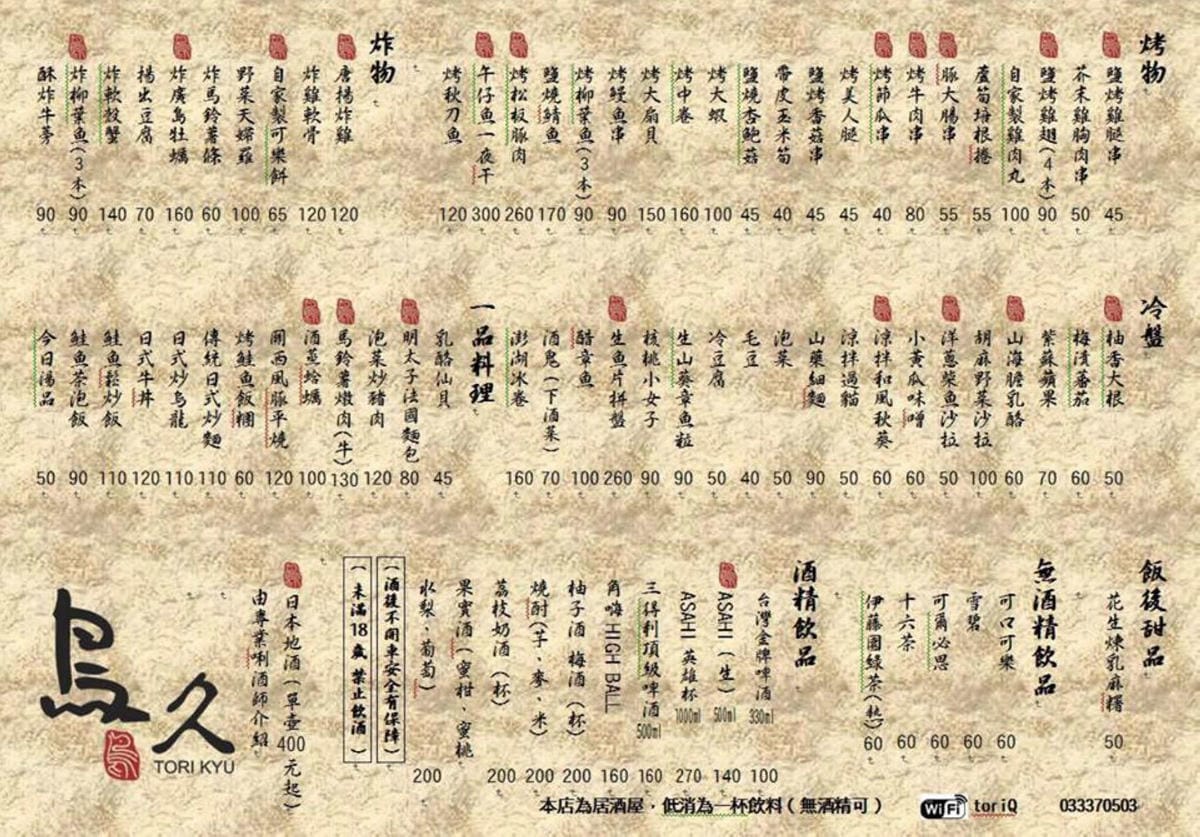 烤物
鹽烤雞腿串 45
芥末雞胸肉串 50
鹽烤雞翅(4本) 90
自家製雞肉丸 100
蘆筍培根捲 55
豚大腸串 55
烤牛肉串 80
烤節瓜串 40
烤美人腿 45
鹽烤香菇串 45
帶皮玉米筍 40
鹽燒杏鮑菇 45
烤大蝦 100
烤中卷 160
烤大扇貝 150
烤鰻魚串 90
烤柳葉魚(3本) 90
鹽燒鯖魚 170
烤松板豚肉 260
午仔魚一夜干 300
烤秋刀魚 120
炸物
唐揚炸雞 120
炸雞軟骨 120
自家製可樂餅 65
野菜天婦羅 100
炸馬鈴薯條 60
炸廣島牡蠣 160
揚出豆腐 70
炸軟殼蟹 140
炸柳葉魚(3本) 90
酥炸牛蒡 90
冷盤
柚香大根 50
梅漬蕃茄 60
紫蘇蘋果 70
山海膽乳酪 60
胡麻野菜沙拉 100
洋蔥柴魚沙拉 50
小黃瓜味噌 60
涼拌和風秋葵 60
涼拌過貓 50
山藥細麵 90
泡菜 50
毛豆 40
冷豆腐 50
生山葵章魚粒 90
核桃小女子 90
生魚片拼盤 260
醋章魚 100
酒鬼(下酒菜) 70
澎湖冰卷 160
一品料理
乳酪仙貝 45
明太子法國麵包 80
泡菜炒豬肉 120
馬鈴薯燉肉(牛) 130
酒蒸蛤蠣 100
關西風豚平燒 120
烤鮭魚飯糰 60
傳統日式炒麵 110
日式炒烏龍 110
日式牛丼 120
鮭魚菘炒飯 110
鮭魚茶泡飯 90
今日湯品 50
飯後甜品
花生煉乳麻糬 50
無酒精飲品
可口可樂 60
雪碧 60
可爾必思 60
十六茶 60
伊藤園綠茶(熱) 60
酒精飲品
台灣金牌啤酒 330ml 100
ASAHI(生) 500ml 140
ASAHI 英雄杯 1000ml 270
三得利頂級啤酒 500ml 160
角嗨 HIGH BALL 160
柚子酒 梅酒(杯) 200
燒酎(芋、麥、米) 200
荔枝奶酒(杯) 200
果實酒(蜜柑、蜜桃
水梨、葡萄) 200
(酒後不開車安全有保障)
(未滿18歲 禁止飲酒)
日本地酒(單壺400元起)
由專業唎酒師介紹
鳥久
TORI KYU
本店為居酒屋，低消為一杯飲料(無酒精可)
WiFi toriQ
033370503